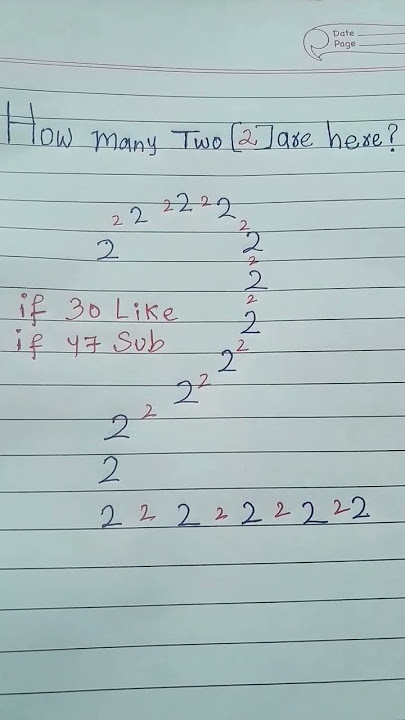 Date
Page
How many Two [2] are here?
2 2 2 2 2 2
2 2
2
2
2
2
if 30 Like
2
if 47 Sub
2 2
2 2
2 2
2
2 2 2 2 2 2 2 2 2